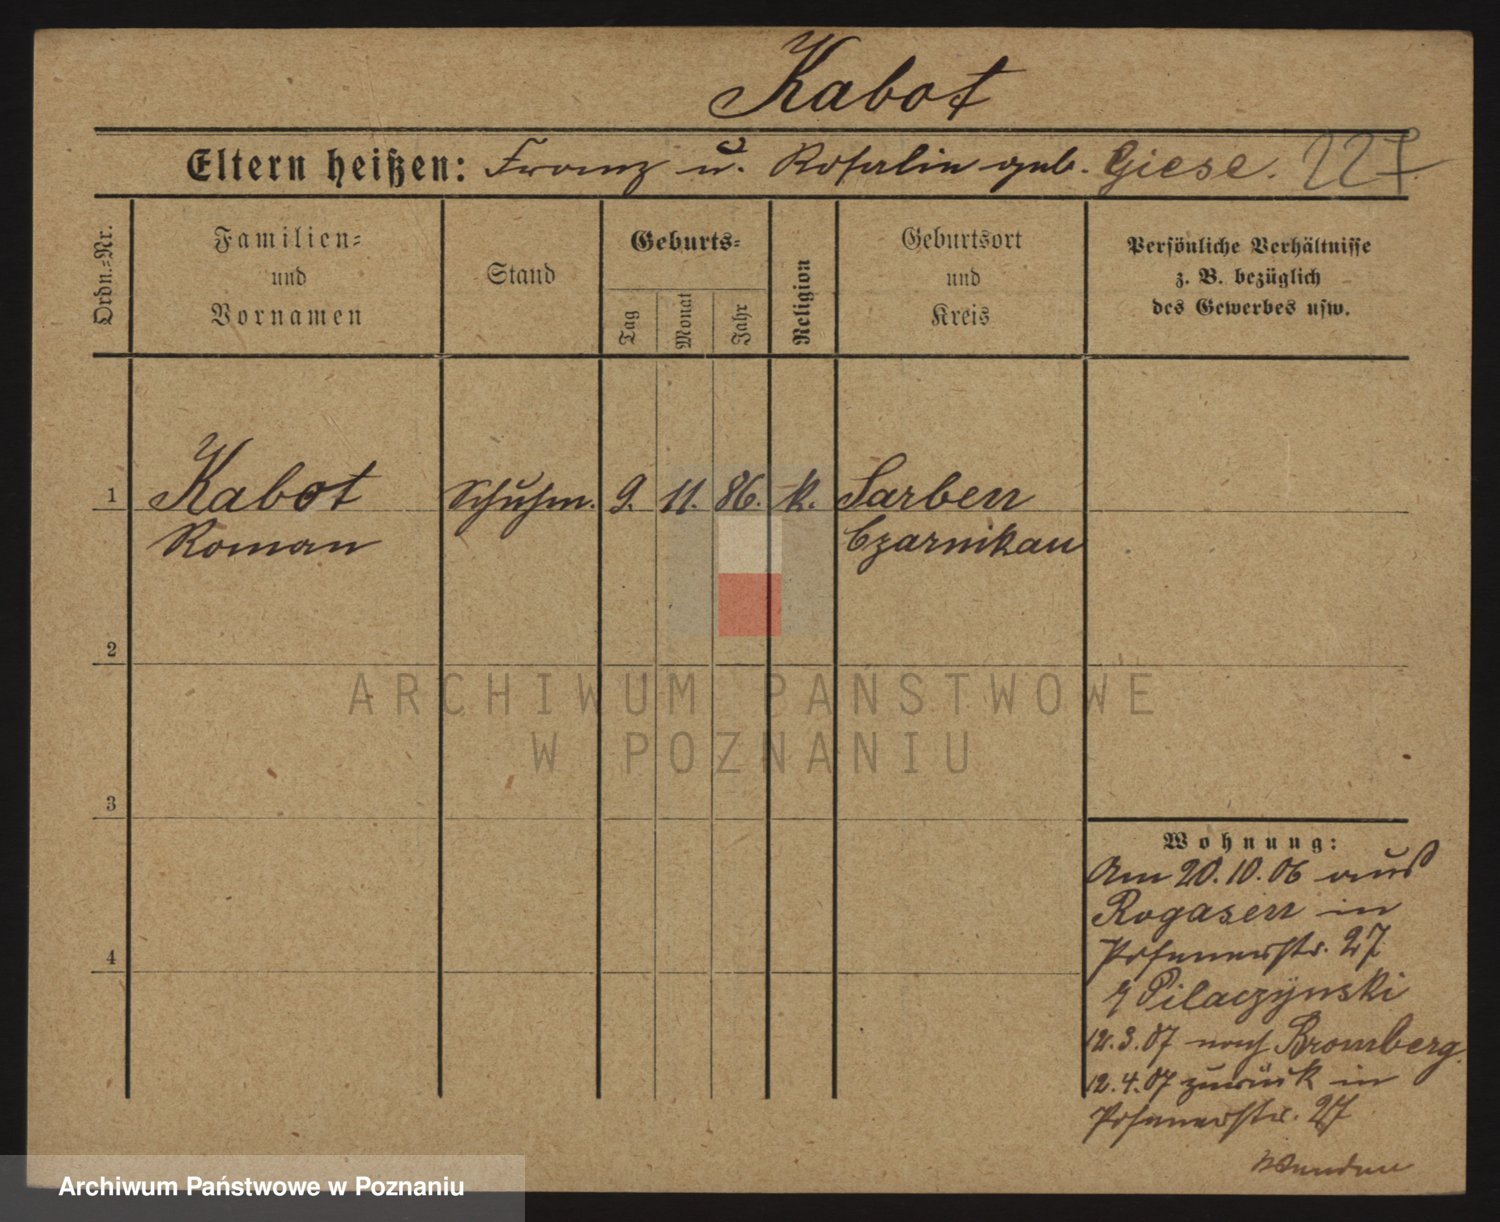 Kabot
Eltern heißen: Franz u. Rosalie geb. Giese. 227.
Ordn.-Nr.
Familien-
und
Vornamen
Stand
Geburts-
Tag
Monat
Jahr
Religion
Geburtsort
und
Kreis
Persönliche Verhältnisse
z. B. bezüglich
des Gewerbes usw.
1 Kabot Schuhm. 9. 11. 86. k. Sarben
Roman Czarnikau
2
ARCHIWUM PAŃSTWOWE
W POZNANIU
3
Wohnung:
Am 20.10.06 aus
Rogasen in
Posenerstr. 27
Pilaczynski
4
12.3.07 nach Bromberg.
12.4.07 zurück in
Posenerstr. 27
Wenden
Archiwum Państwowe w Poznaniu